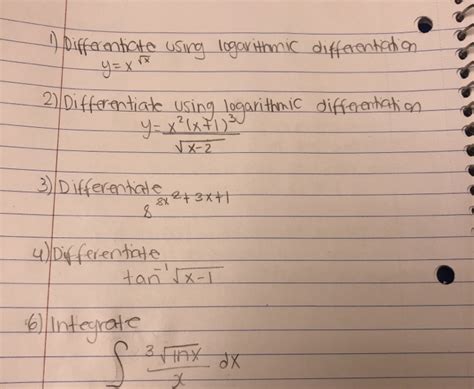 1) Differentiate using logarithmic differentiation
y = x^√x
2) Differentiate using logarithmic differentiation
y = x²(x+1)³ / √x-2
3) Differentiate
8^8x²+3x+1
4) Differentiate
tan⁻¹ √x-1
6) Integrate
∫ ³√lnx / x dx